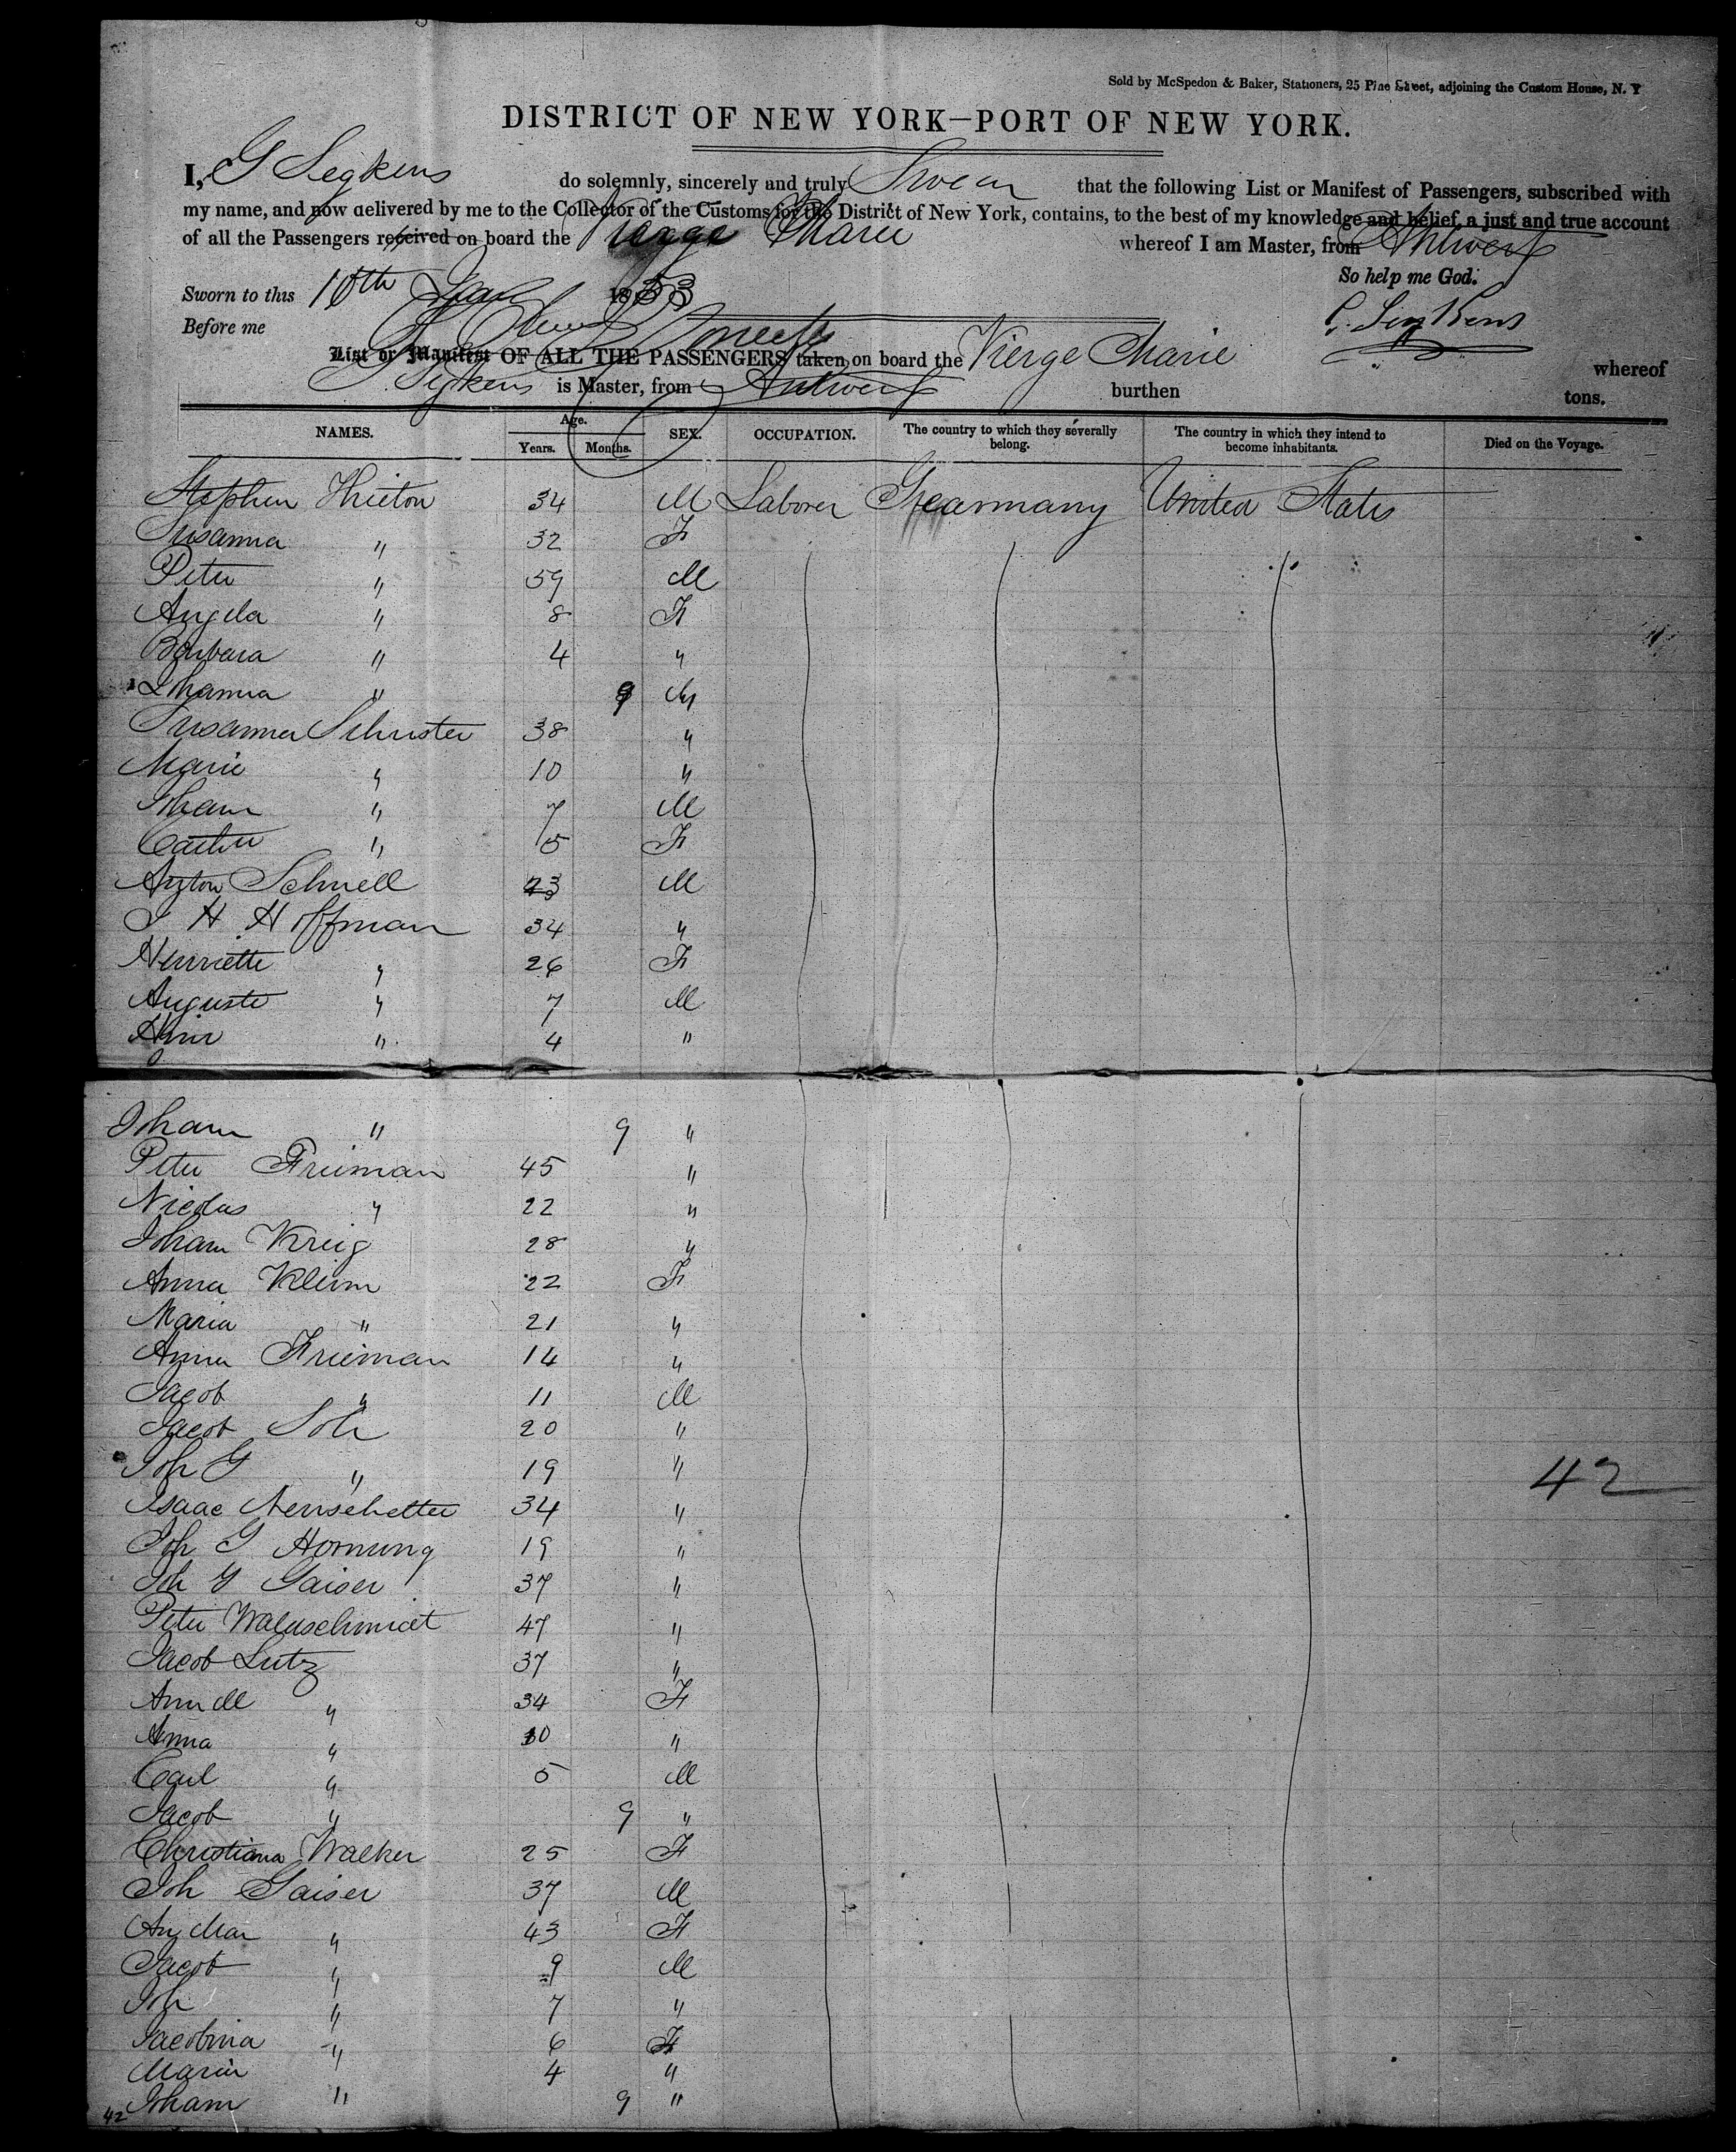 Sold by McSpedon & Baker, Stationers, 25 Pine Street, adjoining the Custom House, N. Y
DISTRICT OF NEW YORK—PORT OF NEW YORK.
I, G Segkens do solemnly, sincerely and truly Swear that the following List or Manifest of Passengers, subscribed with
my name, and now delivered by me to the Collector of the Customs for the District of New York, contains, to the best of my knowledge and belief, a just and true account
of all the Passengers received on board the Vierge Marie whereof I am Master, from Antwerp
So help me God.
Sworn to this 18 53
Before me
List or Manifest OF ALL THE PASSENGERS taken on board the Vierge Marie whereof
G Segkens is Master, from Antwerp burthen tons.
NAMES. Age. Years. Months. SEX. OCCUPATION. The country to which they severally belong. The country in which they intend to become inhabitants. Died on the Voyage.
Stephen Thieton 34 M Laborer Gearmany United States
Susanna " 32 F
Peter " 59 M
Angela " 8 F
Barbara " 4 "
Johanna " 9 "
Susanna Schuster 38 "
Marie " 10 "
Joham " 7 M
Cathe " 5 F
Anton Schnell 23 M
J H Hoffman 34 "
Henriette " 26 F
Auguste " 7 M
" 4 "
Joham " 9 "
Peter Frieman 45 "
Nicolas " 22 "
Joham Kreig 28 "
Anna Kleim 22 F
Maria " 21 "
Anna Frieman 14 "
Jacob " 11 M
Jacob Soh 20 "
Joh G " 19 "
Isaac Nenschetter 34 "
Joh G Hornung 19 "
Joh G Gaiser 37 "
Peter Waldschmidt 47 "
Jacob Lutz 37 "
Ann M " 34 F
Anna " 10 "
Carl " 5 M
Jacob " 9 "
Christiana Walker 25 F
Joh Gaiser 37 M
An Mar " 43 F
Jacob " 9 M
Joh " 7 "
Jacobina " 6 F
Maria " 4 "
Joham " 9 "
42
42